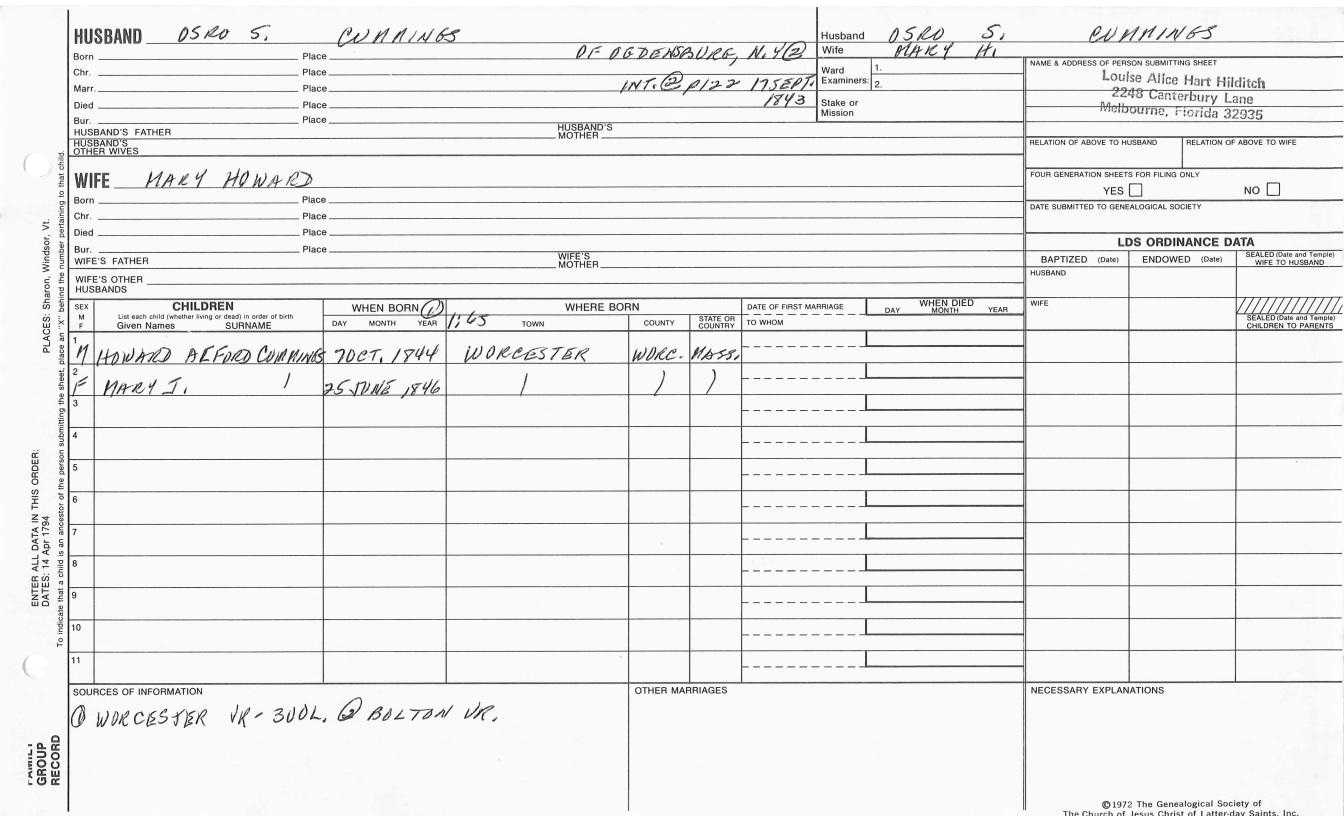 HUSBAND OSRO S. CUMMINGS
Born Place OF OGDENSBURG, N.Y. ②
Chr. Place
Marr. Place INT. ② P122 17 SEPT.
Died Place 1843
Bur. Place
HUSBAND'S FATHER HUSBAND'S MOTHER
HUSBAND'S OTHER WIVES
Husband OSRO S. CUMMINGS
Wife MARY H.
Ward Examiners: 1.
2.
Stake or Mission
NAME & ADDRESS OF PERSON SUBMITTING SHEET
Louise Alice Hart Hilditch
2248 Canterbury Lane
Melbourne, Florida 32935
RELATION OF ABOVE TO HUSBAND RELATION OF ABOVE TO WIFE
FOUR GENERATION SHEETS FOR FILING ONLY
YES NO
DATE SUBMITTED TO GENEALOGICAL SOCIETY
WIFE MARY HOWARD
Born Place
Chr. Place
Died Place
Bur. Place
WIFE'S FATHER WIFE'S MOTHER
WIFE'S OTHER HUSBANDS
LDS ORDINANCE DATA
BAPTIZED (Date) ENDOWED (Date) SEALED (Date and Temple) WIFE TO HUSBAND
HUSBAND
WIFE
SEALED (Date and Temple) CHILDREN TO PARENTS
SEX M F
CHILDREN
List each child (whether living or dead) in order of birth
Given Names SURNAME
WHEN BORN ① 1:65
DAY MONTH YEAR
WHERE BORN
TOWN COUNTY STATE OR COUNTRY
DATE OF FIRST MARRIAGE
TO WHOM
WHEN DIED
DAY MONTH YEAR
1 M HOWARD ALFORD CUMMINGS 7 OCT. 1844 WORCESTER WORC. MASS.
2 F MARY J. 25 JUNE 1846
3
4
5
6
7
8
9
10
11
SOURCES OF INFORMATION
① WORCESTER VR - 3 VOL. ② BOLTON VR.
OTHER MARRIAGES
NECESSARY EXPLANATIONS
©1972 The Genealogical Society of
The Church of Jesus Christ of Latter-day Saints, Inc.
ENTER ALL DATA IN THIS ORDER:
DATES: 14 Apr 1794 PLACES: Sharon, Windsor, Vt.
To indicate that a child is an ancestor of the person submitting the sheet, place an "X" behind the number pertaining to that child.
FAMILY
GROUP
RECORD